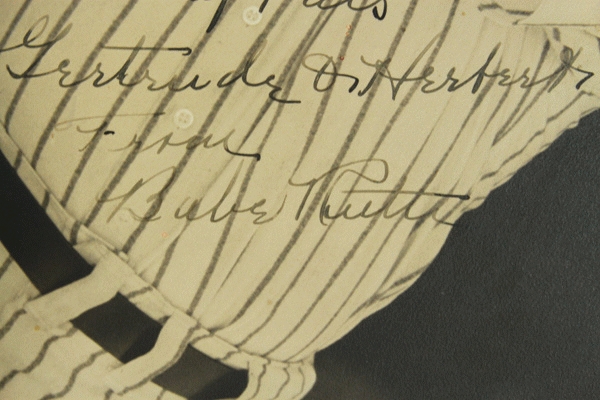 my Pals
Gertrude & Herbert
From
Babe Ruth